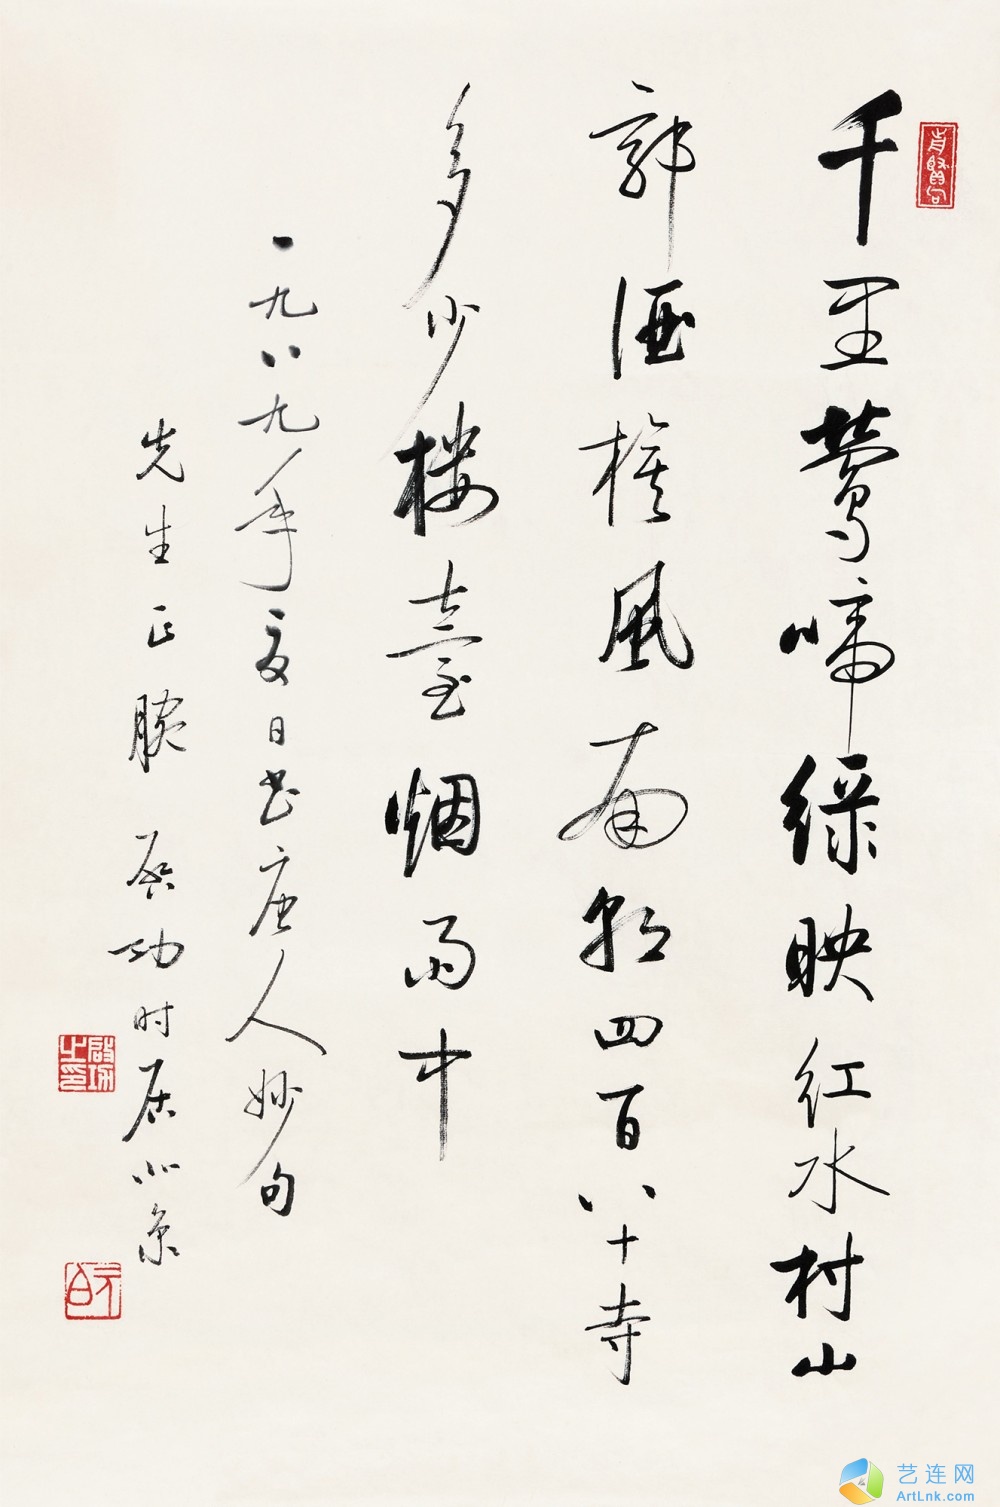 千里莺啼绿映红水村山
郭酒旗风南朝四百八十寺
多少楼臺烟雨中
一九八九年夏日书唐人妙句
先生正腕 启功时居北京
启功之印
元白
艺连网
ArtLnk.com